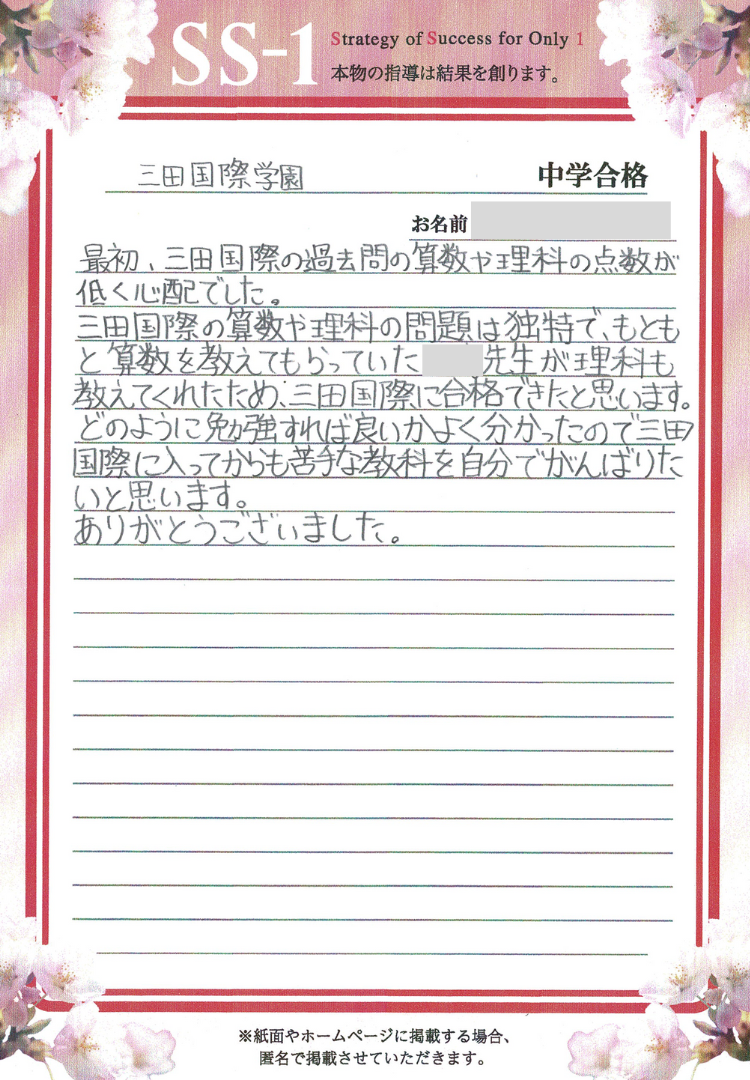 SS-1
Strategy of Success for Only 1
本物の指導は結果を創ります。
三田国際学園 中学合格
お名前
最初、三田国際の過去問の算数や理科の点数が
低く心配でした。
三田国際の算数や理科の問題は独特で、もとも
と算数を教えてもらっていた 先生が理科も
教えてくれたため、三田国際に合格できたと思います。
どのように勉強すれば良いかよく分かったので三田
国際に入ってからも苦手な教科を自分でがんばりた
いと思います。
ありがとうございました。
※紙面やホームページに掲載する場合、
匿名で掲載させていただきます。